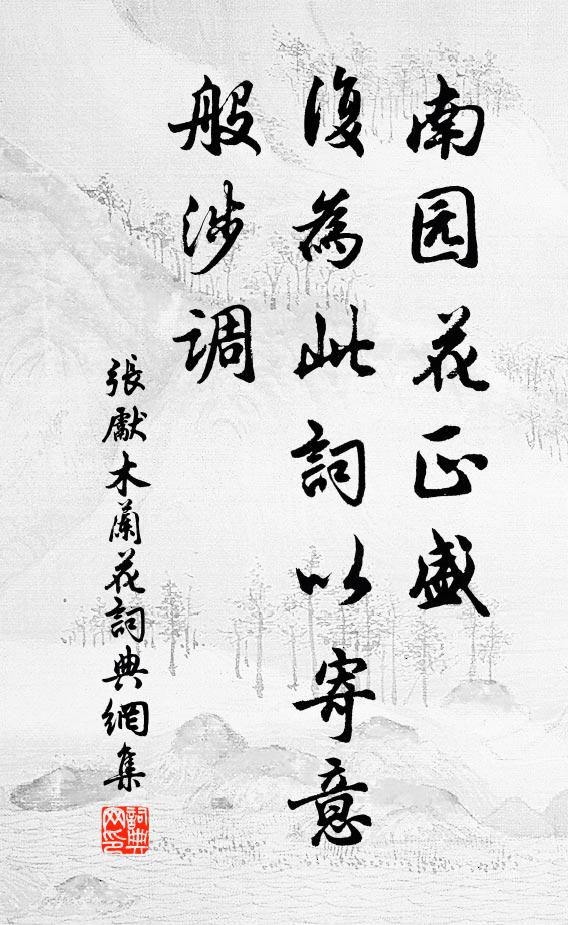 南园花正盛
復為此詞以寄意
般涉调
張獻木蘭花詞典網集
詞典网印